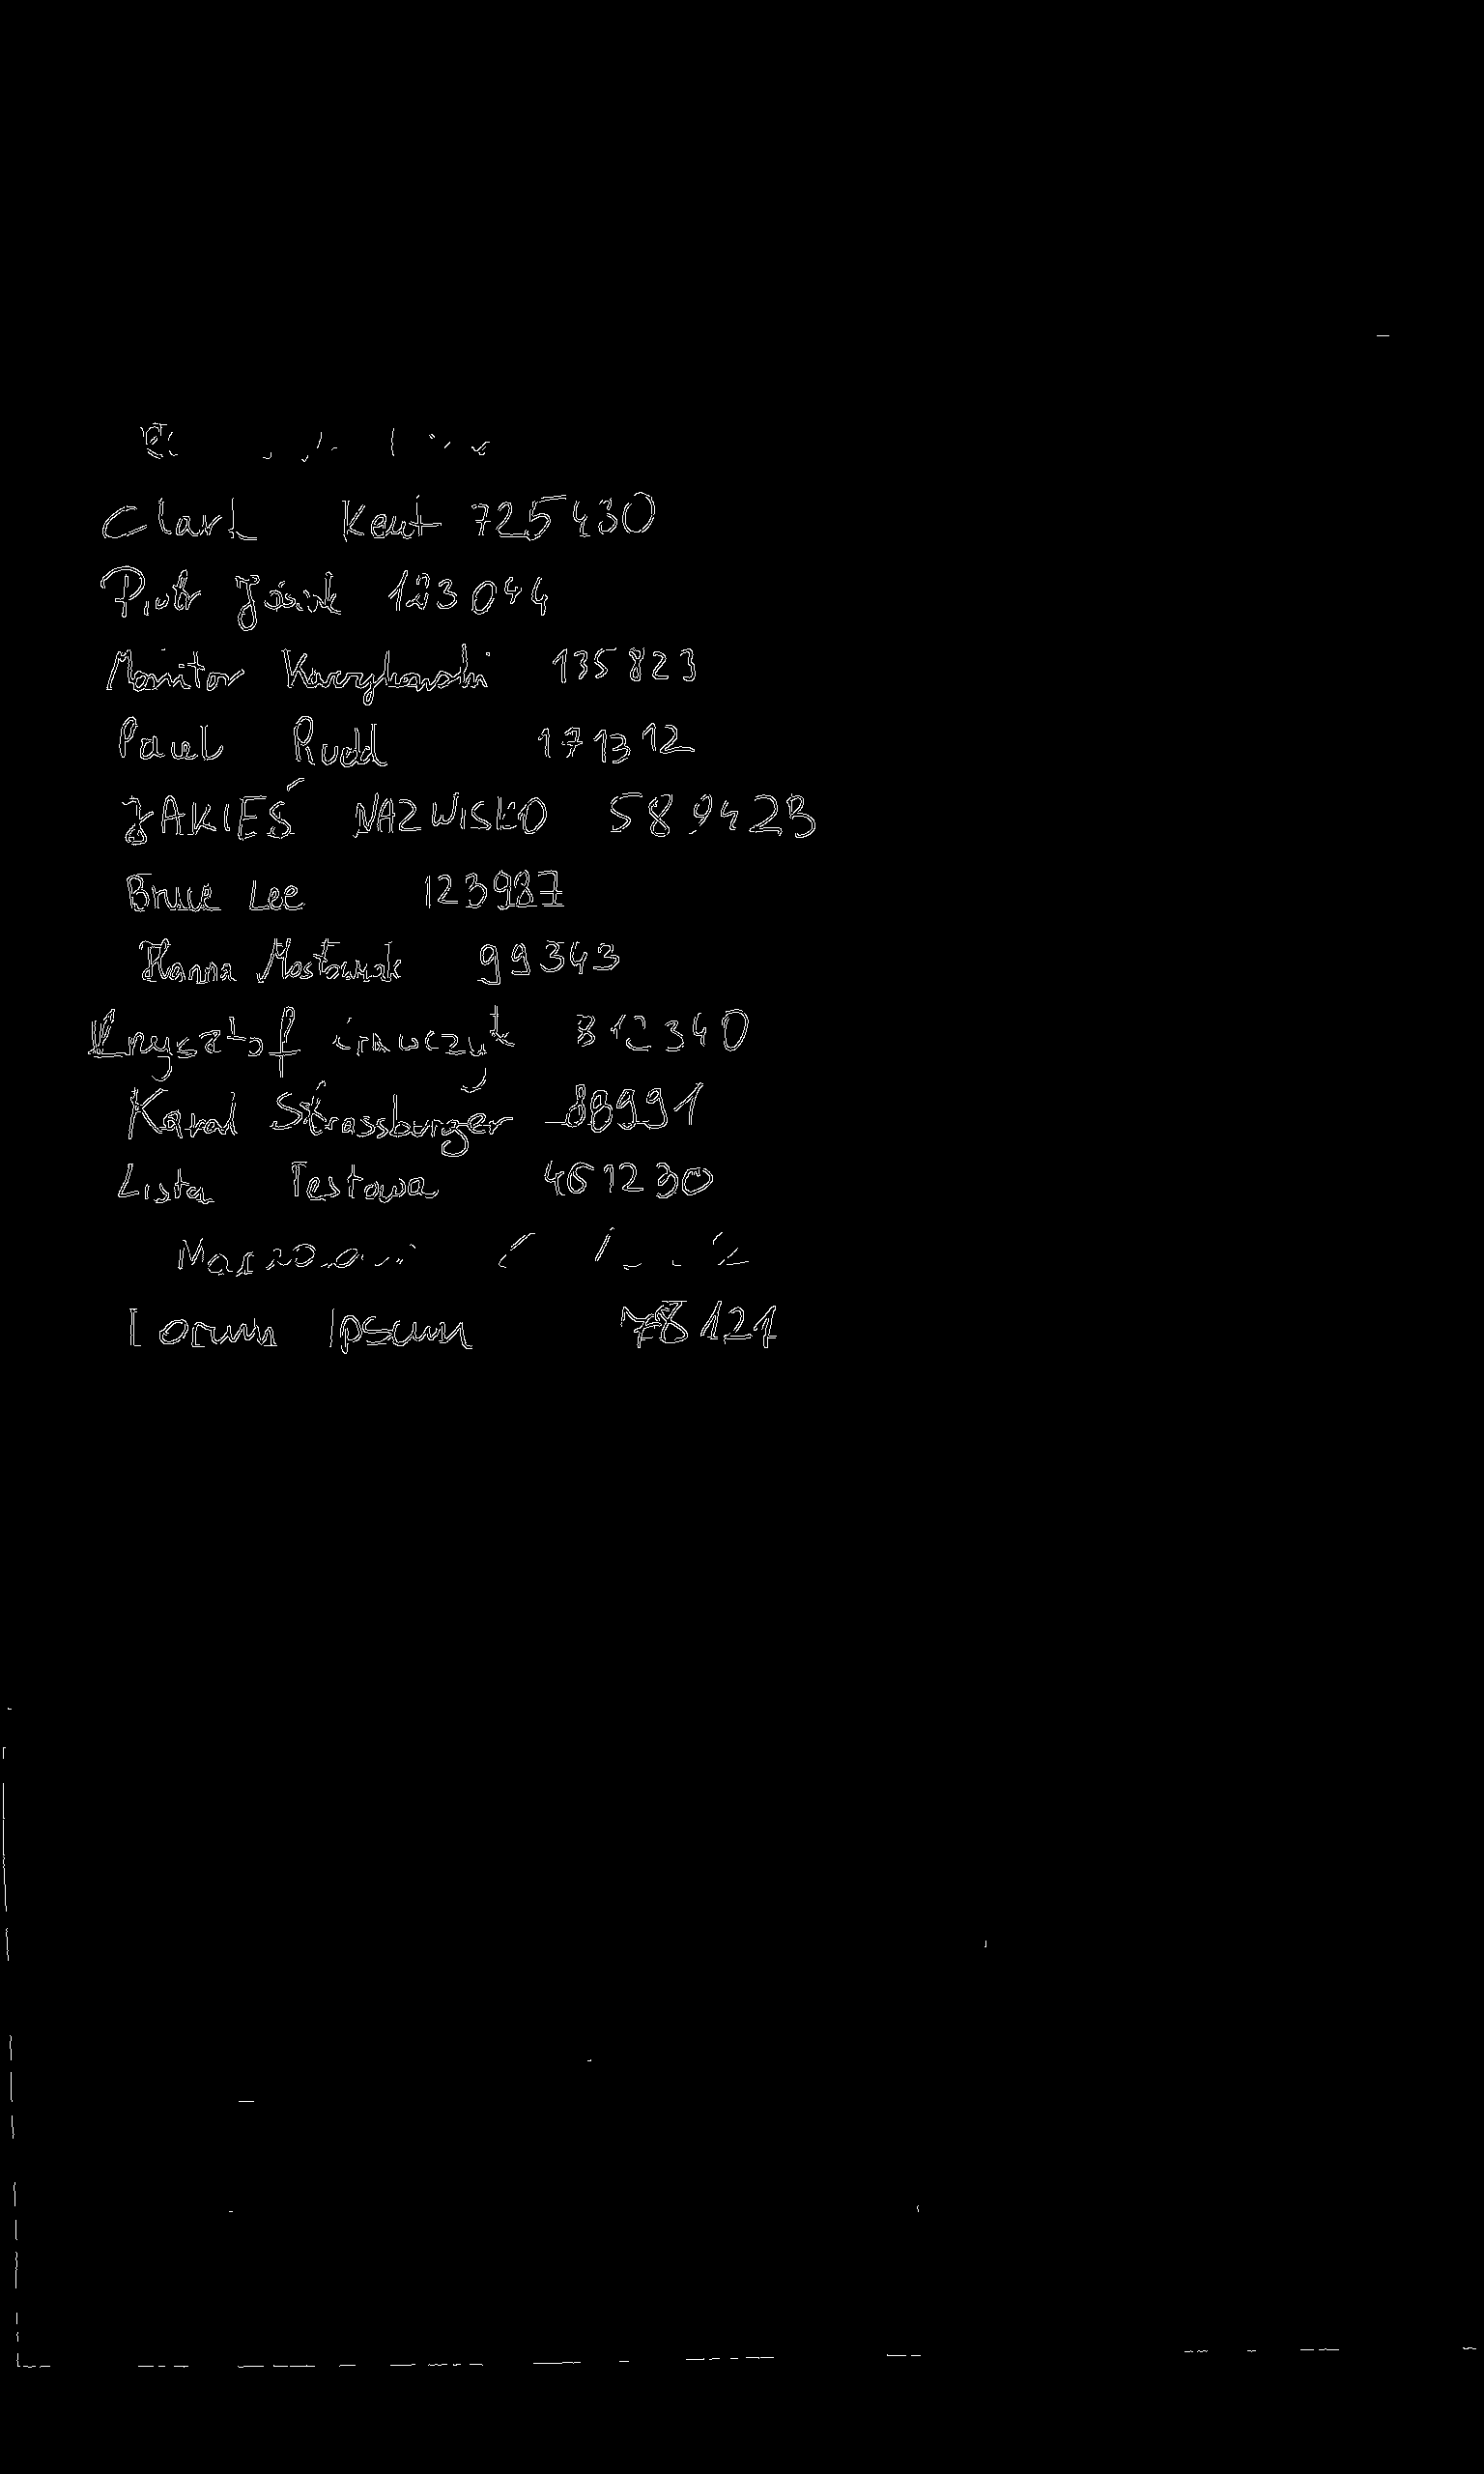 Clark Kent 725430
Piotr Jósiak 123044
Monitor Kurzykowski 135823
Paul Rudd 171312
JAKIEŚ NAZWISKO 589423
Bruce Lee 123987
Hanna Mostowiak 99343
Krysztof 812340
Karol Strassburger 88991
Lista Testowa 461230
Lorum Ipsum 78121